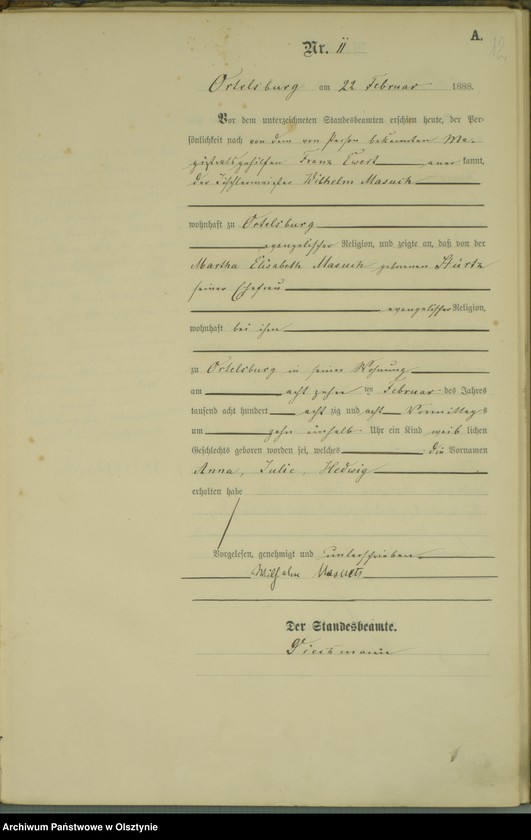 A.
12
Nr. 11
Ortelsburg am 22 Februar 1888.
Vor dem unterzeichneten Standesbeamten erschien heute, der Per-
sönlichkeit nach von dem von Person bekannten Ma-
gistratsgehilfen Franz Ewert aner kannt,
der Tischlermeister Wilhelm Masuch
wohnhaft zu Ortelsburg
evangelischer Religion, und zeigte an, daß von der
Martha Elisabeth Masuch geborenen
seiner Ehefrau
evangelischer Religion,
wohnhaft bei ihm
zu Ortelsburg in seiner Wohnung
am acht zehn ten Februar des Jahres
tausend acht hundert acht zig und acht Vormittags
um zehn einhalb Uhr ein Kind weib lichen
Geschlechts geboren worden sei, welches die Vornamen
Anna, Julie, Hedwig
erhalten habe
Vorgelesen, genehmigt und unterschrieben
Wilhelm
Der Standesbeamte.
Archiwum Państwowe w Olsztynie